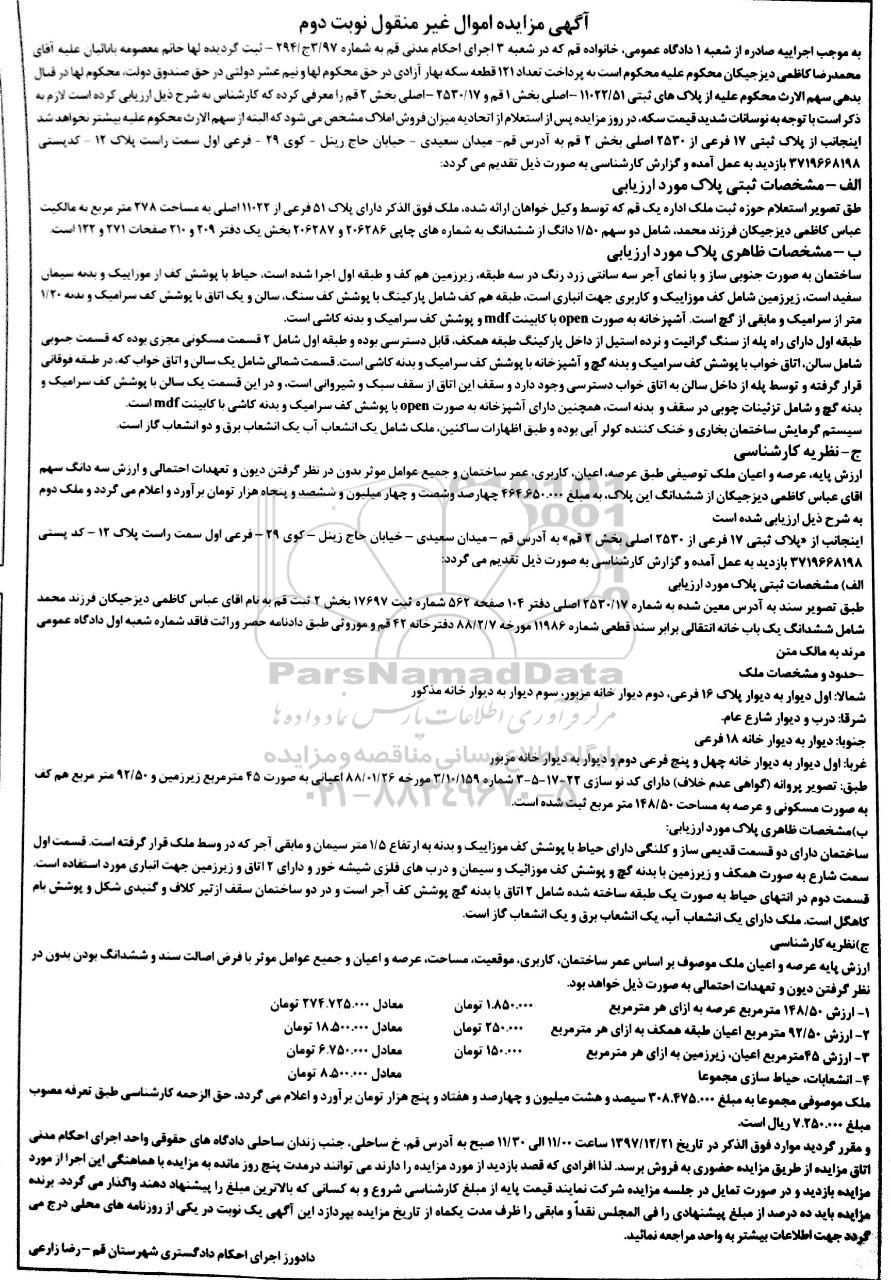 آگهی مزایده اموال غیر منقول نوبت دوم
به موجب اجراییه صادره از شعبه ۱ دادگاه عمومی، خانواده قم که در شعبه ۳ اجرای احکام مدنی قم به شماره ۳/۹۷ج/۲۹۴ - ثبت گردیده لها خانم معصومه بابائیان علیه آقای
محمدرضا کاظمی دیزجیکان محکوم علیه محکوم است به پرداخت تعداد ۱۲۱ قطعه سکه بهار آزادی در حق محکوم لها و نیم عشر دولتی در حق صندوق دولت، محکوم لها در قبال
بدهی سهم الارث محکوم علیه از پلاک های ثبتی ۱۱۰۲۲/۵۱ -اصلی بخش ۱ قم و ۲۵۳۰/۱۷ -اصلی بخش ۲ قم را معرفی کرده که کارشناس به شرح ذیل ارزیابی کرده است لازم به
ذکر است با توجه به نوسانات شدید قیمت سکه، در روز مزایده پس از استعلام از اتحادیه میزان فروش املاک مشخص می شود که البته از سهم الارث محکوم علیه بیشتر نخواهد شد
اینجانب از پلاک ثبتی ۱۷ فرعی از ۲۵۳۰ اصلی بخش ۲ قم به آدرس قم- میدان سعیدی - خیابان حاج زینل - کوی ۲۹ - فرعی اول سمت راست پلاک ۱۲ - کدپستی
۳۷۱۹۶۶۸۱۹۸ بازدید به عمل آمده و گزارش کارشناسی به صورت ذیل تقدیم می گردد:
الف - مشخصات ثبتی پلاک مورد ارزیابی
طق تصویر استعلام حوزه ثبت ملک اداره یک قم که توسط وکیل خواهان ارائه شده، ملک فوق الذکر دارای پلاک ۵۱ فرعی از ۱۱۰۲۲ اصلی به مساحت ۲۷۸ متر مربع به مالکیت
عباس کاظمی دیزجیکان فرزند محمد، شامل دو سهم ۱/۵۰ دانگ از ششدانگ به شماره های چاپی ۲۰۶۲۸۶ و ۲۰۶۲۸۷ بخش یک دفتر ۲۰۹ و ۲۱۰ صفحات ۲۷۱ و ۱۲۲ است.
ب - مشخصات ظاهری پلاک مورد ارزیابی
ساختمان به صورت جنوبی ساز و با نمای آجر سه سانتی زرد رنگ در سه طبقه، زیرزمین هم کف و طبقه اول اجرا شده است، حیاط با پوشش کف از موزاییک و بدنه سیمان
سفید است، زیرزمین شامل کف موزاییک و کاربری جهت انباری است، طبقه هم کف شامل پارکینگ با پوشش کف سنگ، سالن و یک اتاق با پوشش کف سرامیک و بدنه ۱/۲۰
متر از سرامیک و مابقی از گچ است. آشپزخانه به صورت open با کابینت mdf و پوشش کف سرامیک و بدنه کاشی است.
طبقه اول دارای راه پله از سنگ گرانیت و نرده استیل از داخل پارکینگ طبقه همکف، قابل دسترسی بوده و طبقه اول شامل ۲ قسمت مسکونی مجزی بوده که قسمت جنوبی
شامل سالن، اتاق خواب با پوشش کف سرامیک و بدنه گچ و آشپزخانه با پوشش کف سرامیک و بدنه کاشی است. قسمت شمالی شامل یک سالن و اتاق خواب که، در طبقه فوقانی
قرار گرفته و توسط پله از داخل سالن به اتاق خواب دسترسی وجود دارد و سقف این اتاق از سقف سبک و شیروانی است، و در این قسمت یک سالن با پوشش کف سرامیک و
بدنه گچ و شامل تزئینات چوبی در سقف و بدنه است، همچنین دارای آشپزخانه به صورت open با پوشش کف سرامیک و بدنه کاشی با کابینت mdf است.
سیستم گرمایش ساختمان بخاری و خنک کننده کولر آبی بوده و طبق اظهارات ساکنین، ملک شامل یک انشعاب آب یک انشعاب برق و دو انشعاب گاز است.
ج- نظریه کارشناسی
ارزش پایه، عرصه و اعیان ملک توصیفی طبق عرصه، اعیان، کاربری، عمر ساختمان و جمیع عوامل موثر بدون در نظر گرفتن دیون و تعهدات احتمالی و ارزش سه دانگ سهم
اقای عباس کاظمی دیزجیکان از ششدانگ این پلاک، به مبلغ ۴۶۴.۶۵۰.۰۰۰ چهارصد وشصت و چهار میلیون و ششصد و پنجاه هزار تومان برآورد و اعلام می گردد و ملک دوم
به شرح ذیل ارزیابی شده است
اینجانب از «پلاک ثبتی ۱۷ فرعی از ۲۵۳۰ اصلی بخش ۲ قم» به آدرس قم - میدان سعیدی - خیابان حاج زینل - کوی ۲۹ - فرعی اول سمت راست پلاک ۱۲ - کد پستی
۳۷۱۹۶۶۸۱۹۸ بازدید به عمل آمده و گزارش کارشناسی به صورت ذیل تقدیم می گردد:
الف) مشخصات ثبتی پلاک مورد ارزیابی
طبق تصویر سند به آدرس معین شده به شماره ۲۵۳۰/۱۷ اصلی دفتر ۱۰۴ صفحه ۵۶۲ شماره ثبت ۱۷۶۹۷ بخش ۲ ثبت قم به نام اقای عباس کاظمی دیزجیکان فرزند محمد
شامل ششدانگ یک باب خانه انتقالی برابر سند قطعی شماره ۱۱۹۸۶ مورخه ۸۸/۲/۷ دفترخانه ۴۲ قم و موروثی طبق دادنامه حصر وراثت فاقد شماره شعبه اول دادگاه عمومی
مرند به مالک متن
-حدود و مشخصات ملک
شمالا: اول دیوار به دیوار پلاک ۱۶ فرعی، دوم دیوار خانه مزبور، سوم دیوار به دیوار خانه مذکور
شرقا: درب و دیوار شارع عام.
جنوبا: دیوار به دیوار خانه ۱۸ فرعی
غربا: اول دیوار به دیوار خانه چهل و پنج فرعی دوم و دیوار به دیوار خانه مزبور
طبق: تصویر پروانه (گواهی عدم خلاف) دارای کد نو سازی ۲۲-۱۷-۵-۳ شماره ۳/۱۰/۱۵۹ مورخه ۸۸/۰۱/۲۶ اعیانی به صورت ۴۵ مترمربع زیرزمین و ۹۲/۵۰ متر مربع هم کف
به صورت مسکونی و عرصه به مساحت ۱۴۸/۵۰ متر مربع ثبت شده است.
ب)مشخصات ظاهری پلاک مورد ارزیابی:
ساختمان دارای دو قسمت قدیمی ساز و کلنگی دارای حیاط با پوشش کف موزاییک و بدنه به ارتفاع ۱/۵ متر سیمان و مابقی آجر که در وسط ملک قرار گرفته است. قسمت اول
سمت شارع به صورت همکف و زیرزمین با بدنه گچ و پوشش کف موزائیک و سیمان و درب های فلزی شیشه خور و دارای ۲ اتاق و زیرزمین جهت انباری مورد استفاده است.
قسمت دوم در انتهای حیاط به صورت یک طبقه ساخته شده شامل ۲ اتاق با بدنه گچ پوشش کف آجر است و در دو ساختمان سقف ازتیر کلاف و گنبدی شکل و پوشش بام
کاهگل است. ملک دارای یک انشعاب آب، یک انشعاب برق و یک انشعاب گاز است.
ج)نظریه کارشناسی
ارزش پایه عرصه و اعیان ملک موصوف بر اساس عمر ساختمان، کاربری، موقعیت، مساحت، عرصه و اعیان و جمیع عوامل موثر با فرض اصالت سند و ششدانگ بودن بدون در
نظر گرفتن دیون و تعهدات احتمالی به صورت ذیل خواهد بود.
۱- ارزش ۱۴۸/۵۰ مترمربع عرصه به ازای هر مترمربع ۱.۸۵۰.۰۰۰ تومان معادل ۲۷۴.۷۲۵.۰۰۰ تومان
۲- ارزش ۹۲/۵۰ مترمربع اعیان طبقه همکف به ازای هر مترمربع ۲۵۰.۰۰۰ تومان معادل ۱۸.۵۰۰.۰۰۰ تومان
۳- ارزش ۴۵مترمربع اعیان، زیرزمین به ازای هر مترمربع ۱۵۰.۰۰۰ تومان معادل ۶.۷۵۰.۰۰۰ تومان
۴- انشعابات، حیاط سازی مجموعا معادل ۸.۵۰۰.۰۰۰ تومان
ملک موصوفی مجموعا به مبلغ ۳۰۸.۴۷۵.۰۰۰ سیصد و هشت میلیون و چهارصد و هفتاد و پنج هزار تومان برآورد و اعلام می گردد، حق الزحمه کارشناسی طبق تعرفه مصوب
مبلغ ۷.۲۵۰.۰۰۰ ریال است.
و مقرر گردید موارد فوق الذکر در تاریخ ۱۳۹۷/۱۲/۲۱ ساعت ۱۱/۰۰ الی ۱۱/۳۰ صبح به آدرس قم، خ ساحلی، جنب زندان ساحلی دادگاه های حقوقی واحد اجرای احکام مدنی
اتاق مزایده از طریق مزایده حضوری به فروش برسد. لذا افرادی که قصد بازدید از مورد مزایده را دارند می توانند درمدت پنج روز مانده به مزایده با هماهنگی این اجرا از مورد
مزایده بازدید و در صورت تمایل در جلسه مزایده شرکت نمایند قیمت پایه از مبلغ کارشناسی شروع و به کسانی که بالاترین مبلغ را پیشنهاد دهند واگذار می گردد. برنده
مزایده باید ده درصد از مبلغ پیشنهادی را فی المجلس نقداً و مابقی را ظرف مدت یکماه از تاریخ مزایده بپردازد این آگهی یک نوبت در یکی از روزنامه های محلی درج می
گردد جهت اطلاعات بیشتر به واحد مراجعه نمائید.
دادورز اجرای احکام دادگستری شهرستان قم - رضا زارعی
ParsNamadData
مرکز فرآوری اطلاعات پارس نماد داده ها
پایگاه اطلاع رسانی مناقصه و مزایده
۰۲۱-۸۸۳۴۹۶۷۰-۵